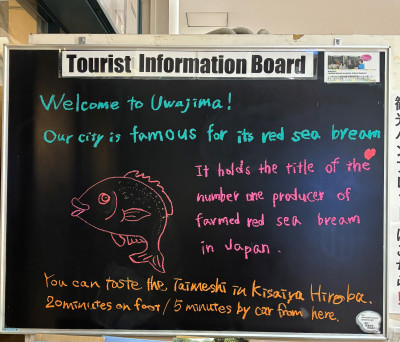 Tourist Information Board
Welcome to Uwajima!
Our city is famous for its red sea bream
It holds the title of the
number one producer of
farmed red sea bream
in Japan.
You can taste the Taimeshi in Kisaiya Hiroba.
20minutes on foot / 5 minutes by car from here.